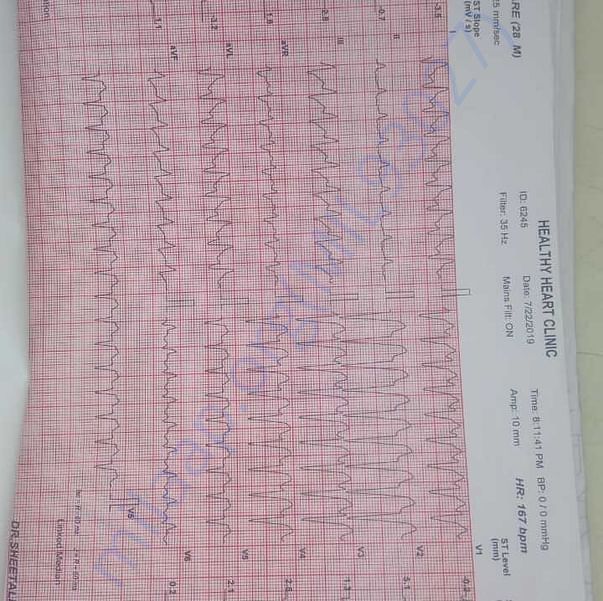 HEALTHY HEART CLINIC
RE (28 M)
ID: 6245
Date: 7/22/2019
Time: 8:11:41 PM
BP: 0 / 0 mmHg
25 mm/sec
Filter: 35 Hz
Mains Filt: ON
Amp: 10 mm
HR: 167 bpm
ST Slope
(mV / s)
ST Level
(mm)
-3.5
V1
-0.2
II
-0.7
V2
5.1
III
-2.8
V3
1.3
aVR
V4
aVL
-3.2
V5
2.1
aVF
1.1
V6
0.2
V5
Linked Median
DR.SHEETAL